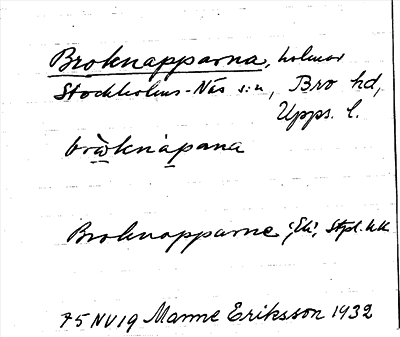 Broknapparna, holmar
Stockholms-Näs s:n, Bro hd,
Upps. l.
bròknápana
Broknapparne
75 NV 19 Manne Eriksson 1932